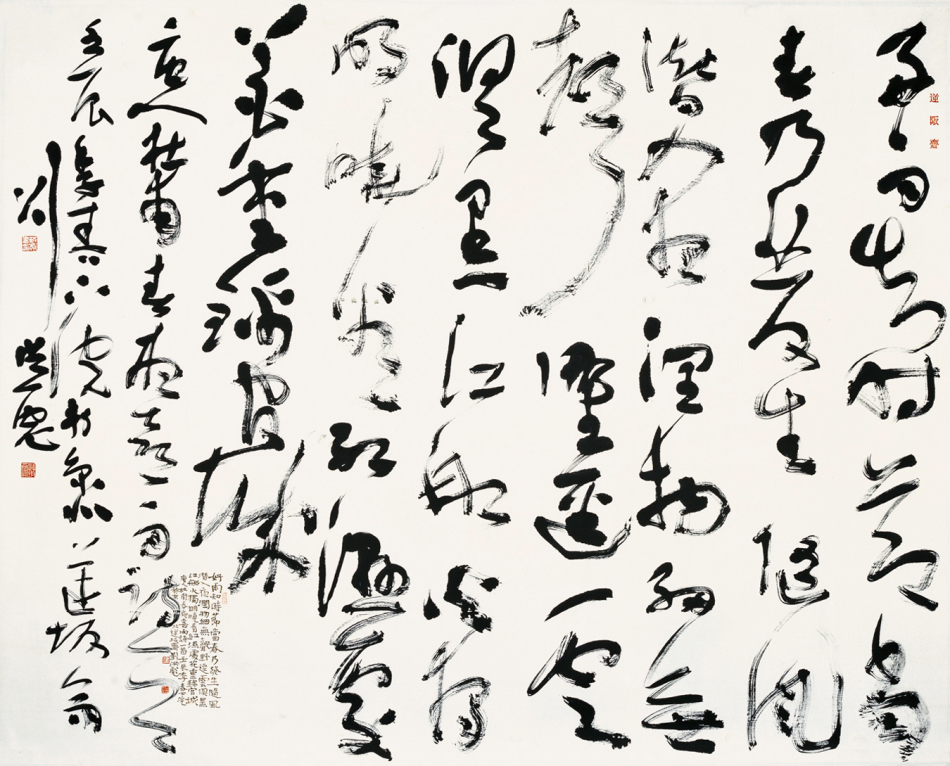 逆阪齋
好雨知時節當
春乃發生隨風
潛入夜潤物細無
聲野徑雲
俱黑江船火獨
明曉看紅濕處
花重錦官城
唐人杜甫春夜喜雨詩
壬辰季春
劉洪彪
好雨知時節當春乃發生隨風
潛入夜潤物細無聲野徑雲俱黑
江船火獨明曉看紅濕處花重錦官城